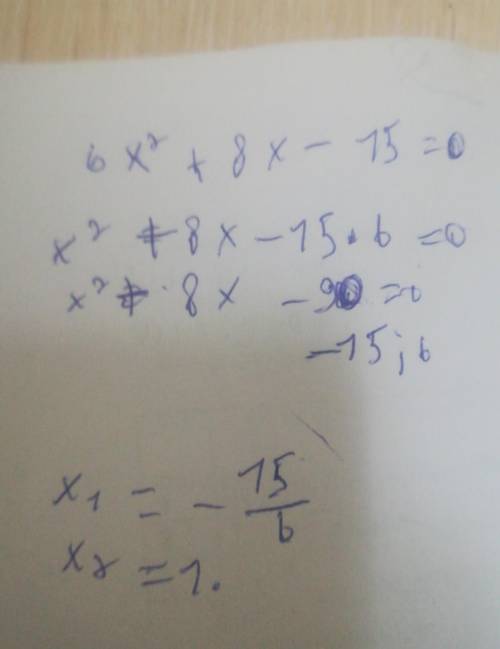 6x² + 8x - 15 = 0
x² + 8x - 15 · 6 = 0
x² + 8x - 90 = 0
-15; 6
x₁ = - 15/6
x₂ = 1.